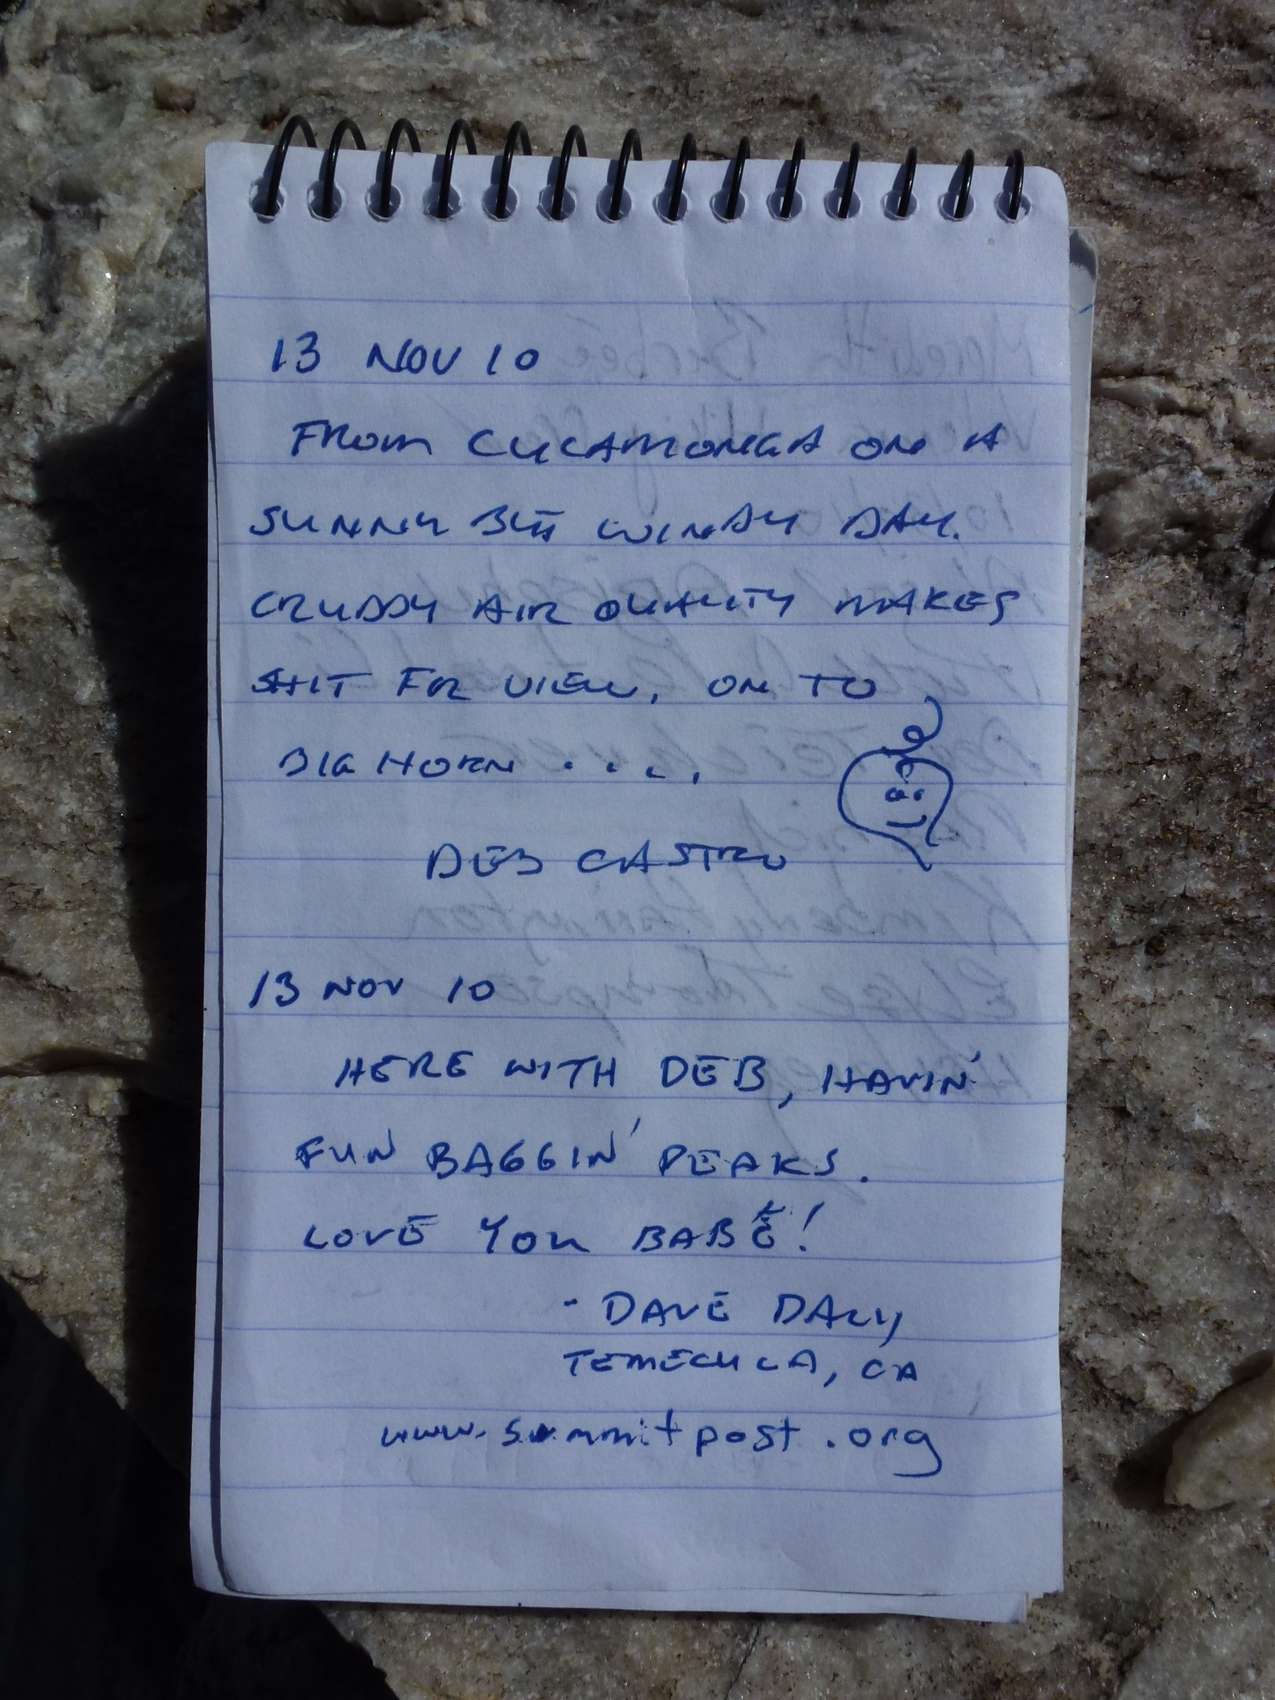 13 NOV 10
FROM CUCAMONGA ON A
SUNNY BUT WINDY DAY.
CRUDDY AIR QUALITY MAKES
SHIT FOR VIEW, ON TO
BIG HORN . . . .
DEB CASTRO
13 NOV 10
HERE WITH DEB, HAVIN'
FUN BAGGIN' PEAKS.
LOVE YOU BABE!
- DAVE DALY
TEMECULA, CA
www.summitpost.org